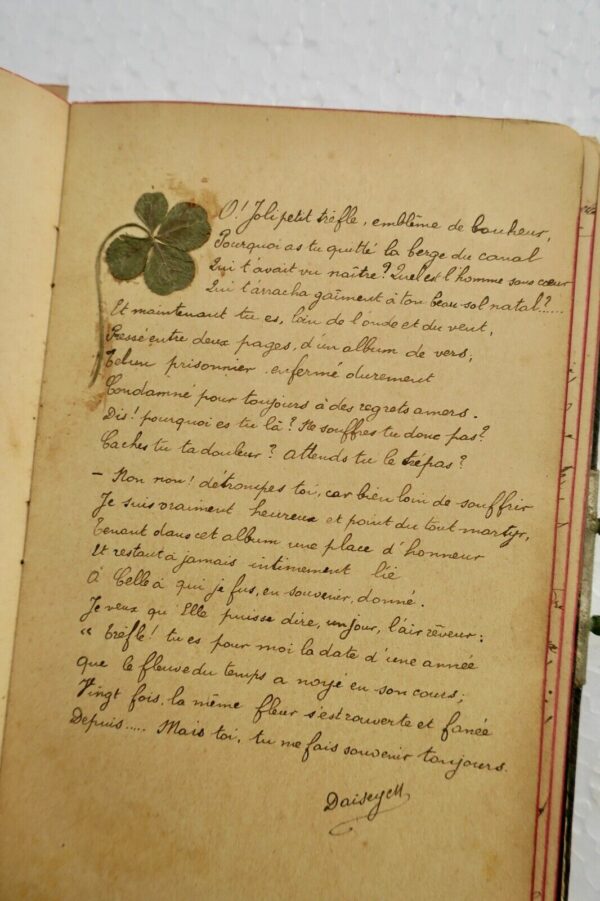 O! Joli petit trèfle, emblême de bonheur,
Pourquoi as tu quitté la berge du canal
Qui t'avait vu naître? Quel est l'homme sans cœur
Qui t'arracha gaîment à ton beau sol natal?....
Et maintenant tu es, loin de l'onde et du vent,
Pressé entre deux pages, d'un album de vers;
Tel un prisonnier enfermé durement
Condamné pour toujours à des regrets amers.
Dis! pourquoi es tu là? Ne souffres tu donc pas?
Caches tu ta douleur? attends tu le trépas?
– Non non! détrompes toi, car bien loin de souffrir
Je suis vraiment heureux et point du tout martyr,
Tenant dans cet album une place d'honneur
Et restant à jamais intimement lié
À Celle à qui je fus, en souvenir, donné.
Je veux qu'Elle puisse dire, un jour, l'air rêveur:
"Trèfle! tu es pour moi la date d'une année
que le fleuve du temps a noyé en son cours;
Vingt fois, la même fleur s'est rouverte et fanée
Depuis..... Mais toi, tu me fais souvenir toujours.